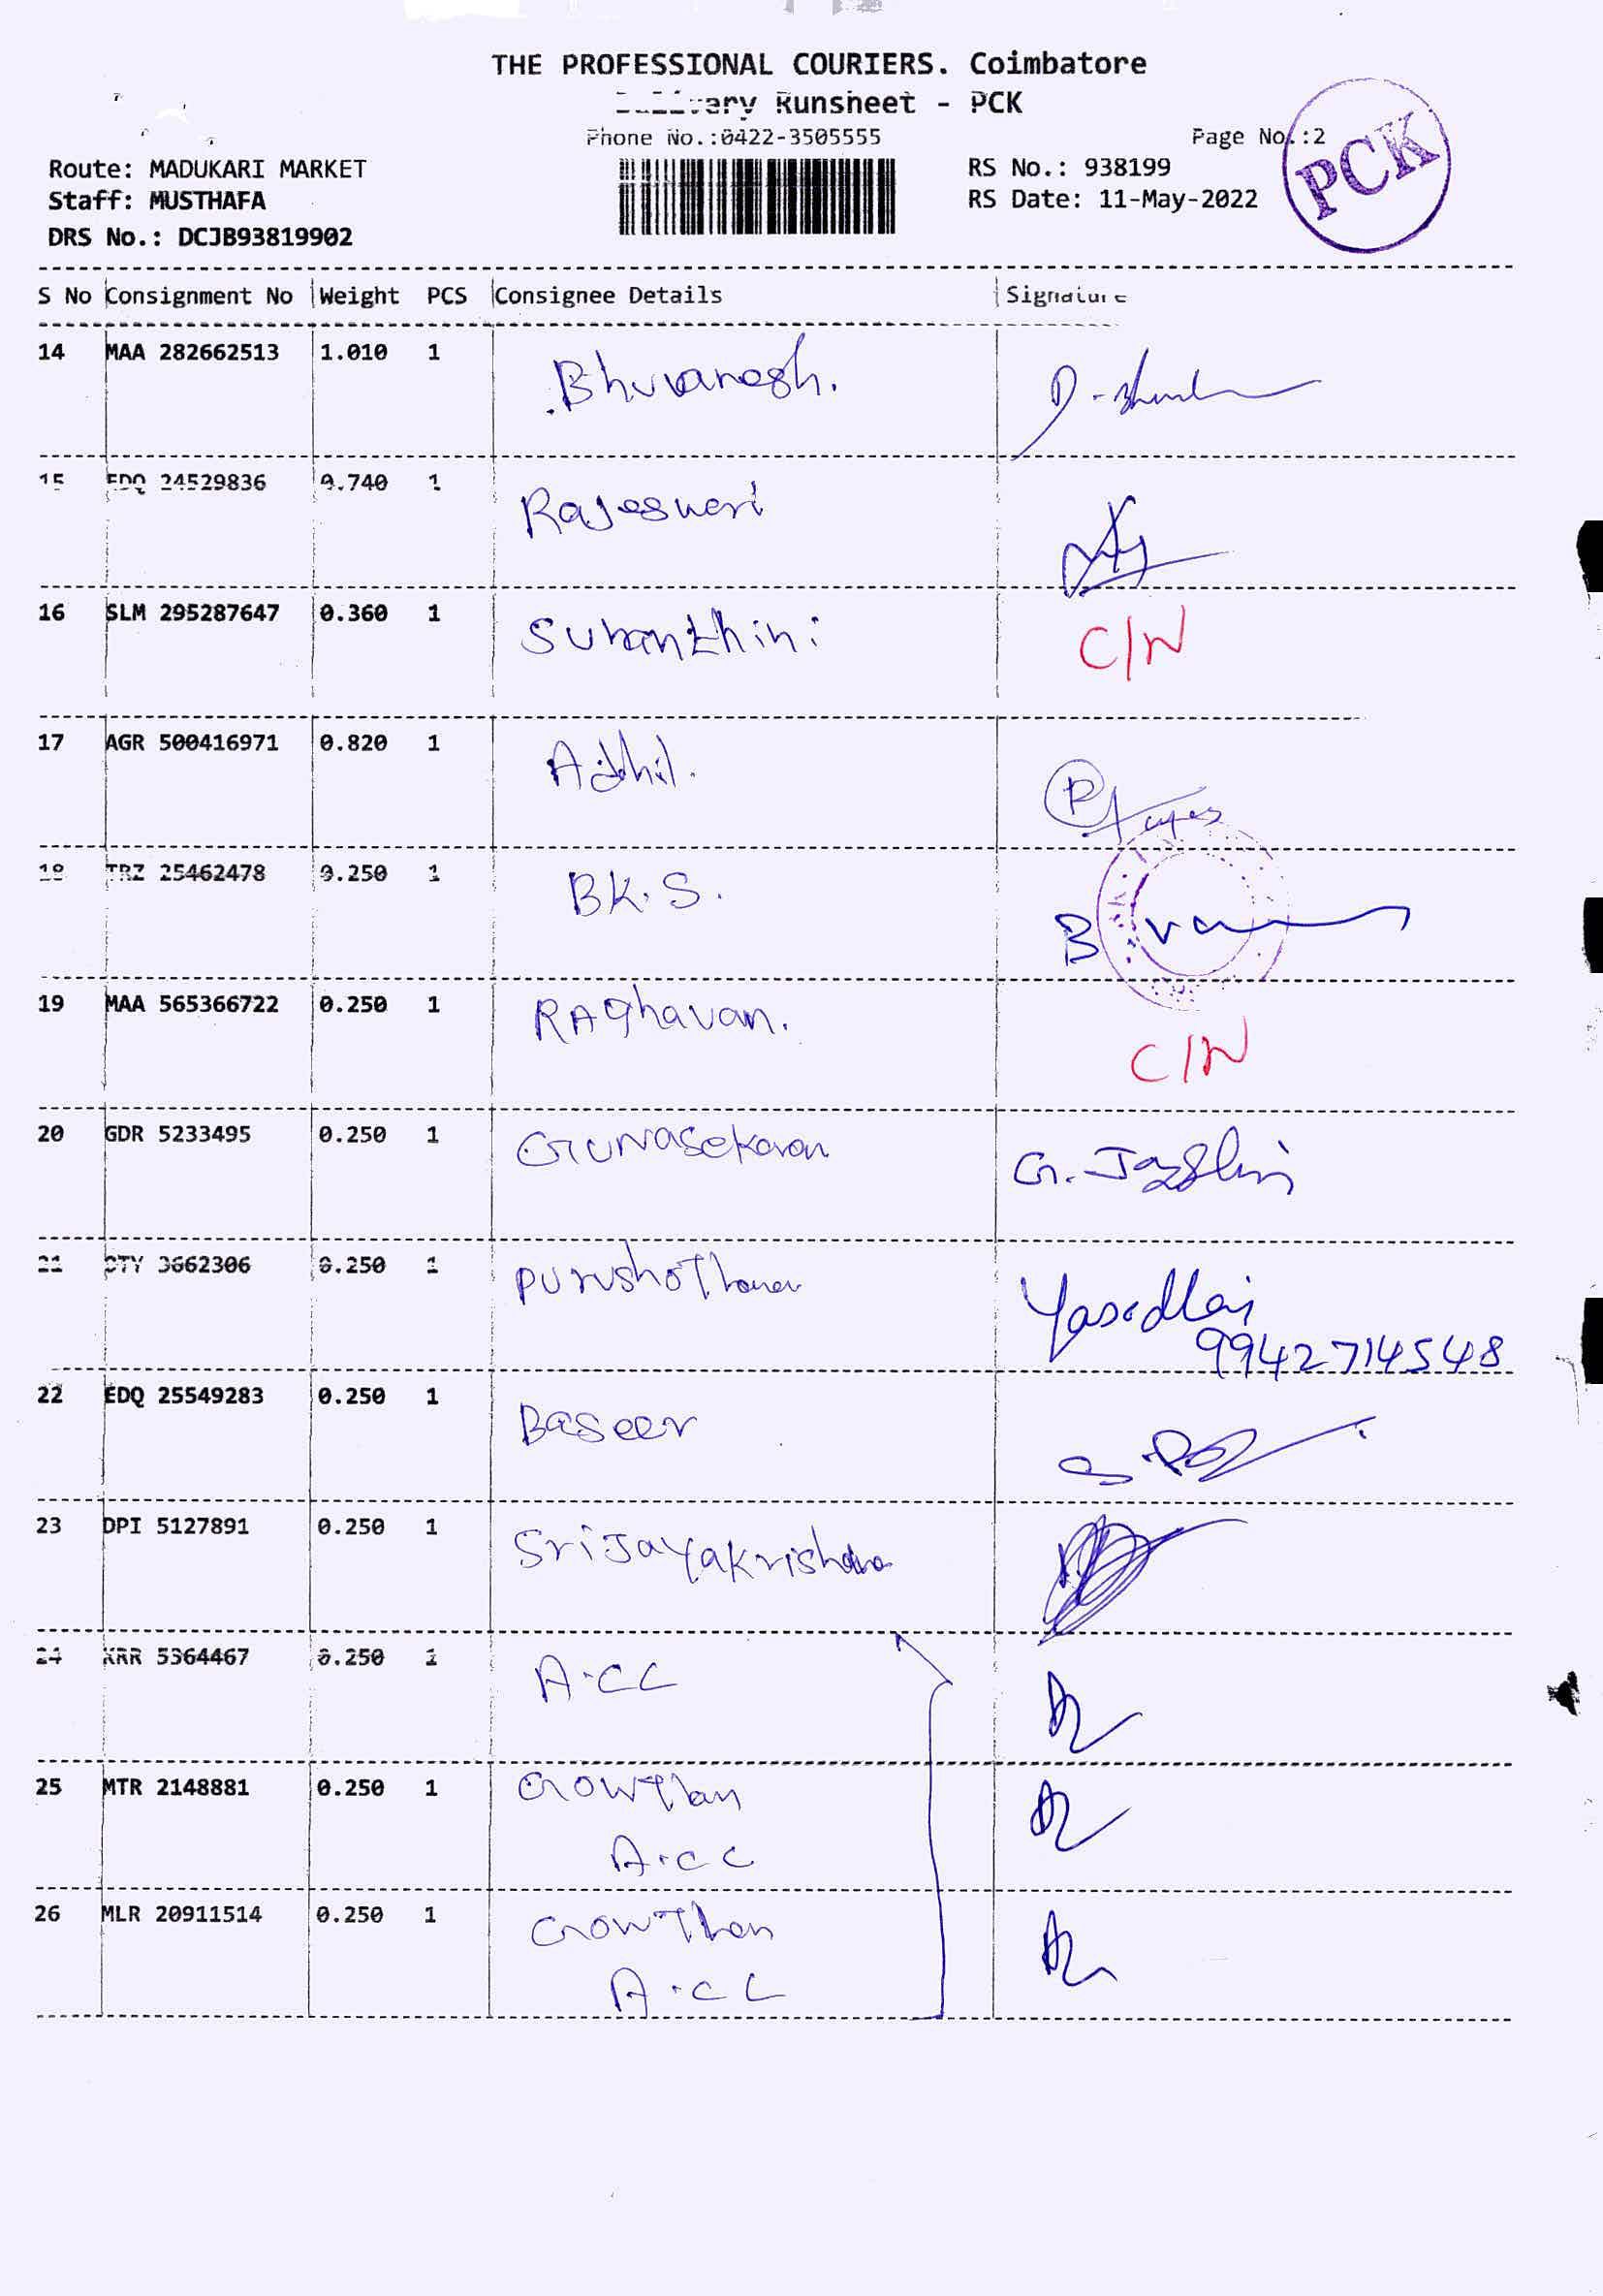 THE PROFESSIONAL COURIERS. Coimbatore
Delivery Runsheet - PCK
Phone No.:0422-3505555
Page No.:2
PCK
Route: MADUKARI MARKET
RS No.: 938199
Staff: MUSTHAFA
RS Date: 11-May-2022
DRS No.: DCJB93819902
S No Consignment No Weight PCS Consignee Details Signature
14 MAA 282662513 1.010 1 Bhuvanesh.
15 EDQ 24529836 0.740 1 Rajesweri
16 SLM 295287647 0.360 1 C/N
17 AGR 500416971 0.820 1 Adhil.
18 TRZ 25462478 0.250 1 BK.S.
19 MAA 565366722 0.250 1 RAghavan. C/N
20 GDR 5233495 0.250 1 Gunasekaran G.
21 OTY 3662306 0.250 1
9942714548
22 EDQ 25549283 0.250 1 Baseer
23 DPI 5127891 0.250 1 Sri Jayakrishna
24 KRR 5364467 0.250 1 A.CC
25 MTR 2148881 0.250 1 Gowthan
A.CC
26 MLR 20911514 0.250 1 Gowthan
A.CC